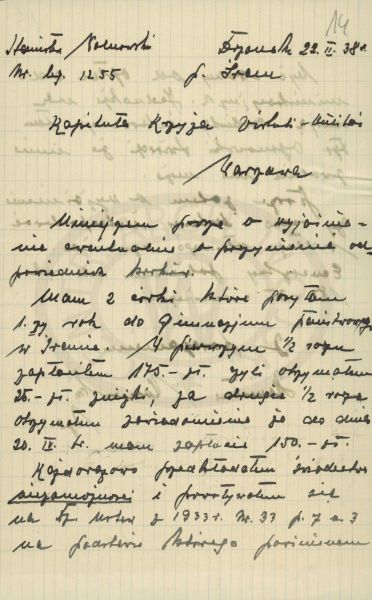 14
Stanisław Nalewski Drzonek 22. II. 38 r.
Nr. leg. 1255 p. Śrem
Kapituła Krzyża Virtuti-Militari
Warszawa
Niniejszem proszę o wyjaśnie-
nie ewentualnie o poczynienie od-
powiednich kroków.
Mam 2 córki które posyłam
1-szy rok do Gimnazjum państwowego
w Śremie. W pierwszym 1/2 roku
zapłaciłem 175.- zł. czyli otrzymałem
25.- zł. zniżki, za drugie 1/2 roku
otrzymałem zawiadomienie że do dnia
20. IV. br. mam zapłacić 150.- zł.
Każdorazowo przedkładałem świadectwo
niezamożności i powoływałem się
na Dz. Ustaw z 1933 r. Nr. 33 p. 7 a. 3
na podstawie którego powinienem